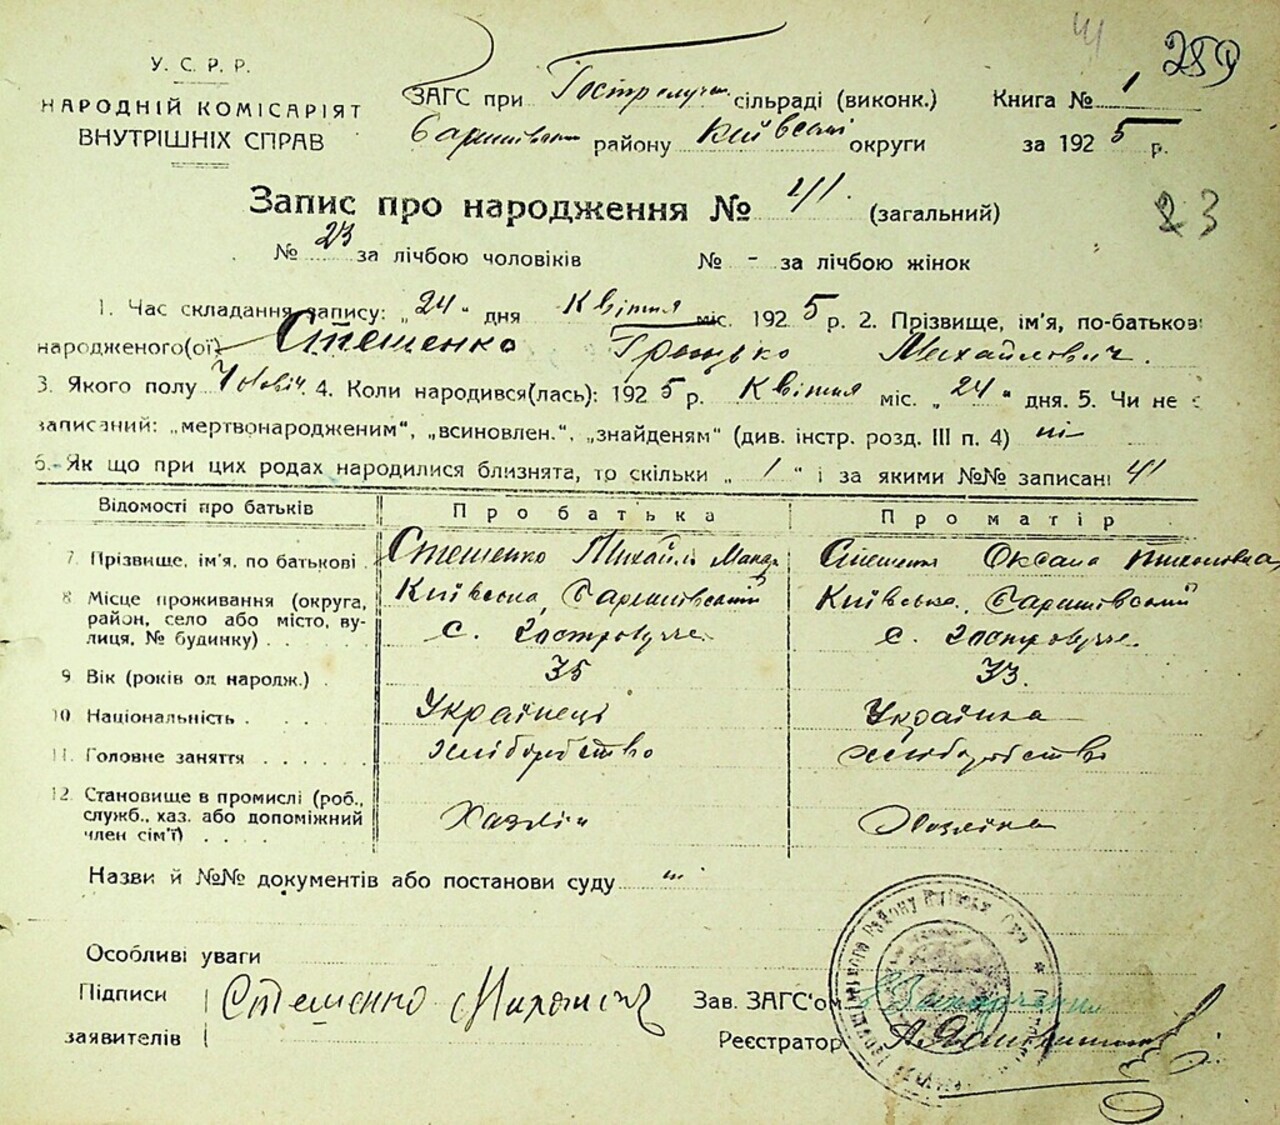 259
У. С. Р. Р.
НАРОДНІЙ КОМІСАРІЯТ
ВНУТРІШНІХ СПРАВ
ЗАГС при Гостролуцк. сільраді (виконк.) Книга № 1
району Київської округи за 1925 р.
Запис про народження № 41. (загальний)
23
№ 23 за лічбою чоловіків № - за лічбою жінок
1. Час складання запису: „24" дня Квітня міс. 1925 р. 2. Прізвище, ім'я, по-батькові
народженого(ої) Стешенко Грицько Михайлович.
3. Якого полу Чоловіч. 4. Коли народився(лась): 1925 р. Квітня міс. „24" дня. 5. Чи не є
записаний: „мертвонародженим", „всиновлен.", „знайденям" (див. інстр. розд. III п. 4) ні
6. Як що при цих родах народилися близнята, то скільки „1" і за якими №№ записані 41
Відомості про батьків Про батька Про матір
7. Прізвище, ім'я, по батькові Стешенко Михайль Макар. Стешенко Оксана
8 Місце проживання (округа, Київська, Баришівський Київська, Баришівський
район, село або місто, ву-
лиця, № будинку) с. Гостролучче с. Гостролучче
9 Вік (років од народж.) 35 33.
10 Національність Українець Українка
11. Головне заняття хліборобство хліборобство
12. Становище в промислі (роб.,
служб., хаз. або допоміжний Хазяїн Хазяїна
член сім'ї)
Назви й №№ документів або постанови суду "
Особливі уваги
Підписи
заявителів
Стешенко
Зав. ЗАГС'ом
Реєстратор